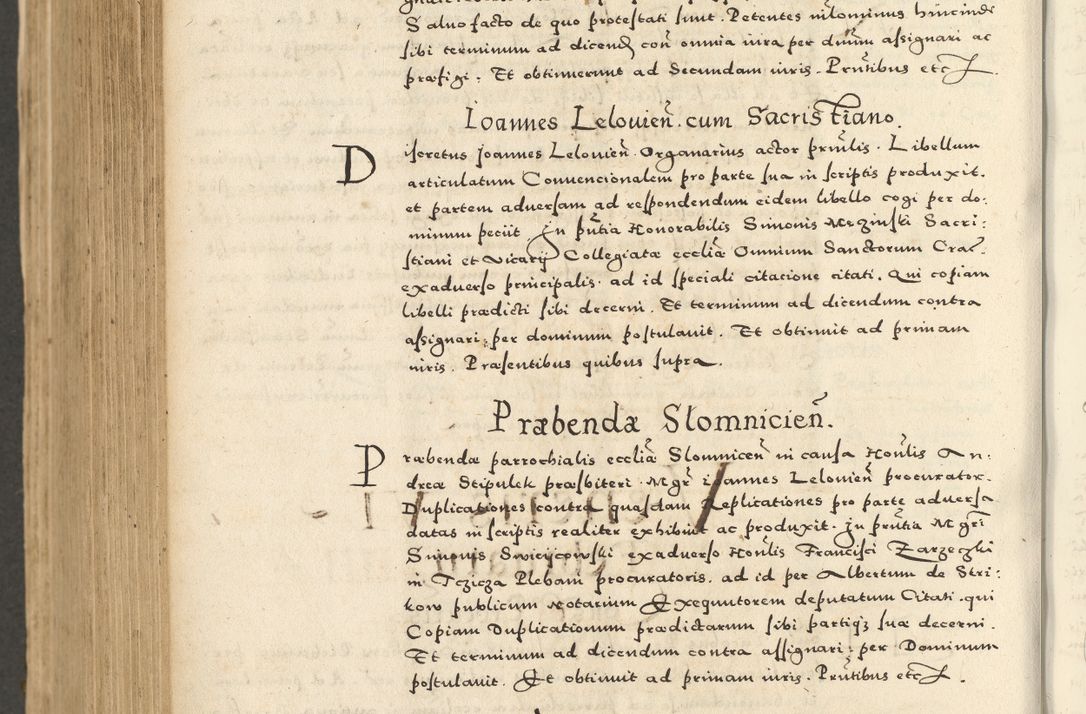 Saluo facto de quo protestati sunt. Petentes nilominus hincinde
sibi terminum ad dicend con omnia iura per dnum assignari ac
præfigi. Et obtinuerunt ad secundam iuris. Prntibus etc
Ioannes Lelouien. cum Sacristiano.
Discretus Joannes Lelouien. Organarius actor prnlis. Libellum
articulatum Conuencionalem pro parte sua in scriptis produxit.
et partem aduersam ad respondendum eidem libello cogi per do:
minum peciit. In pntia Honorabilis Simonis Meginski Sacri:
stiani et Vicarij Collegiatæ eccliæ Omnium Sanctorum Crac
exaduerso principalis. ad id speciali citacione citati. Qui copiam
libelli prædicti sibi decerni. Et terminum ad dicendum contra
assignari: per dominum postulauit. Et obtinuit ad primam
iuris. Præsentibus quibus supra.
Præbendæ Slomnicien.
Præbendæ parrochialis eccliæ Slomnicen in causa Honlis An:
dreæ Stipulek præsbiteri. Mgr ioannes Lelouien procurator.
Duplicationes contra quasdam Replicationes pro parte aduersa
datas in scriptis realiter exhibuit ac produxit. In prntia Mgri
Simonis exaduerso Honlis Francisci Zarzeczki
in Tczicza Plebani procuratoris. ad id per Albertum de Stri:
kow publicum Notarium Exequutorem deputatum Citati. qui
Copiam Duplicationum prædictarum sibi partiq; suæ decerni.
Et terminum ad dicendum contra assignari: per Dominum
postulauit. Et obtinuit ad primam iuris. Prntibus etc.